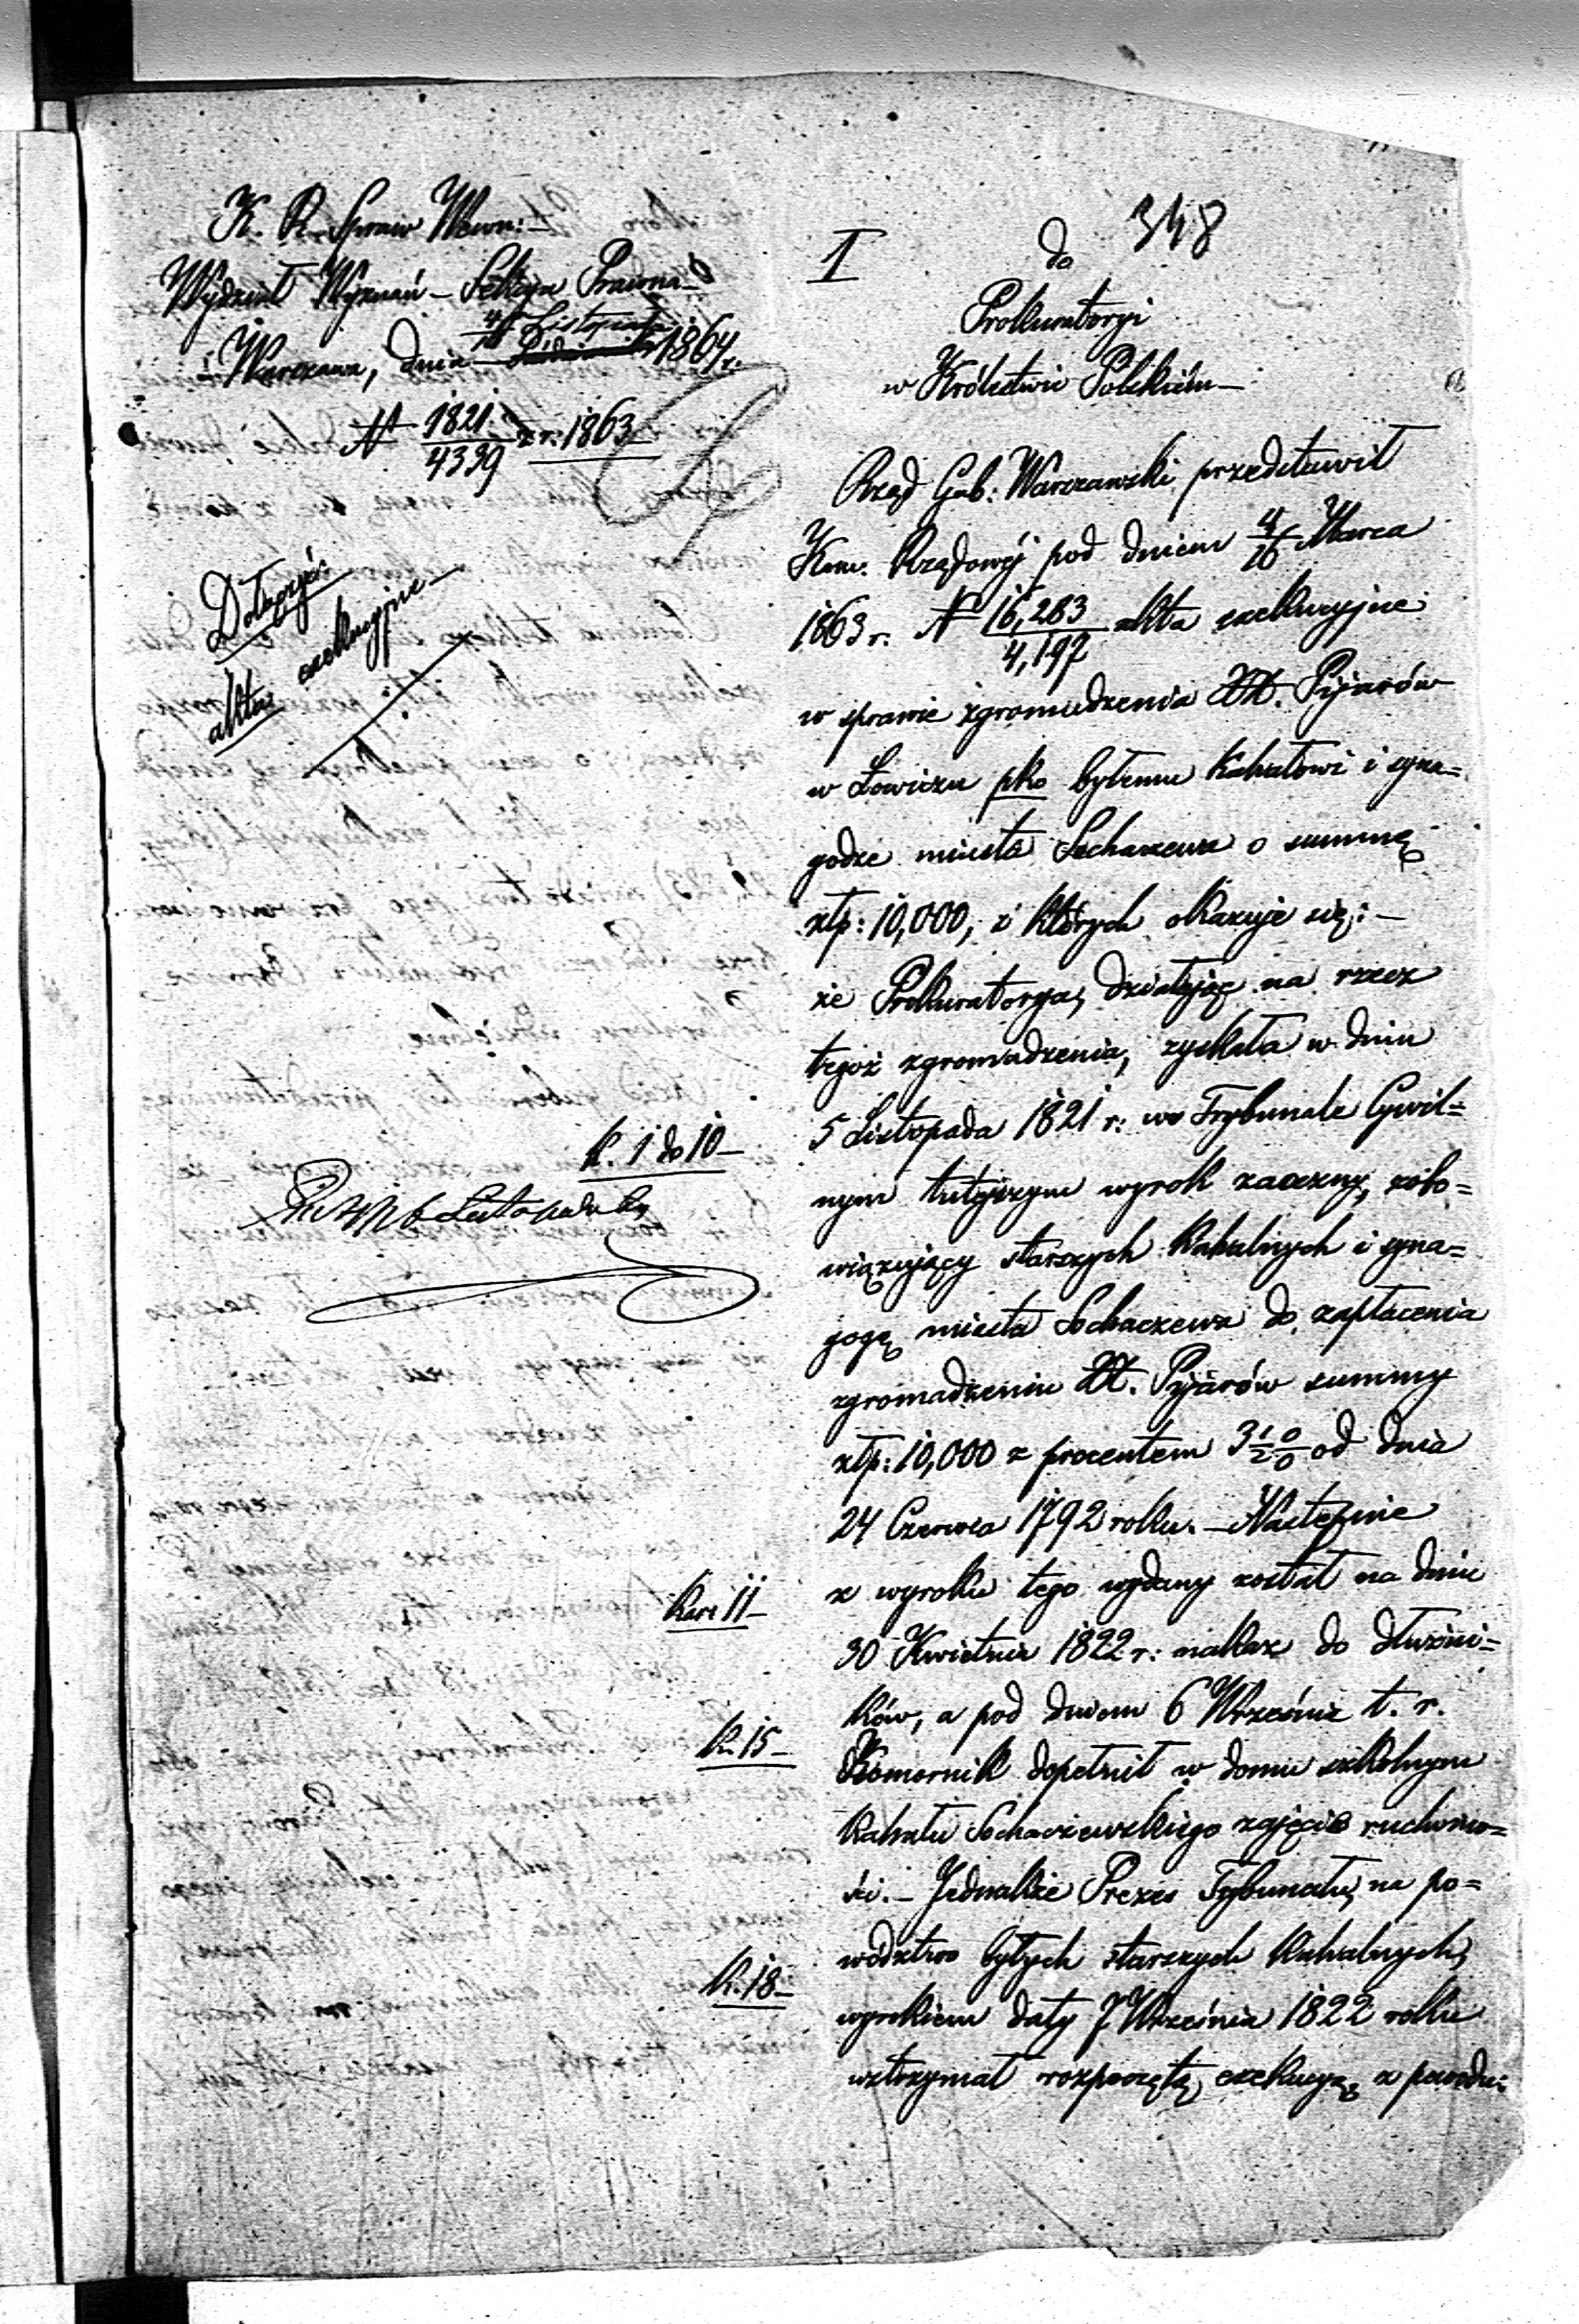 K. R. Spraw Wewn:
Wydział Wyznań – Sekcya Prawna
4/16 Listopada
Warszawa, dnia 1864 r.
N 1821/4339 z r. 1863
Dołączyć:
akta exekucyjne
348
I
do
Prokuratoryi
w Królestwie Polskiém
Rząd Gub: Warszawski przedstawił
Kom. Rządowéj pod dniem 4/16 Marca
1863 r. N 16,283/4,197 akta exekucyjne
w sprawie zgromadzenia XX. Pijarów
w Łowiczu pko byłemu Kahałowi i syna=
godze miasta Sochaczewa o summę
złp: 10,000, z których okazuje się: –
że Prokuratorya, działając na rzecz
tegoż zgromadzenia, zyskała w dniu
5 Listopada 1821 r: w Trybunale Cywil=
K. 1 do 10 –
nym tutejszym wyrok zaoczny, zobo=
wiązujący starszych Kahalnych i syna=
gogę miasta Sochaczewa do zapłacenia
zgromadzeniu XX. Pijarów summy
złp: 10,000 z procentem 3½ 0/0 od dnia
24 Czerwca 1792 roku. – Następnie
z wyroku tego wydany został na dniu
Kart 11 –
30 Kwietnia 1822 r: nakaz do dłużni=
ków, a pod dniem 6 Września t. r.
K. 15 –
Komornik dopełnił w domu szkolnym
Kahału Sochaczewskiego zajęcie ruchomo=
ści. – Jednakże Prezes Trybunału, na po=
wództwo byłych starszych Kahalnych,
K. 18 –
wyrokiem daty 7 Września 1822 roku
wstrzymał rozpoczętą exekucyę, z powodu: